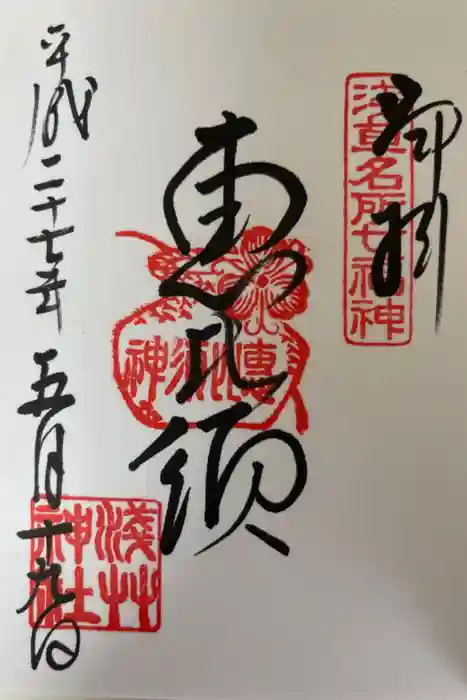 浅草名所七福神
恵比須
惠比須神
平成二十七年五月十九日
淺草神社